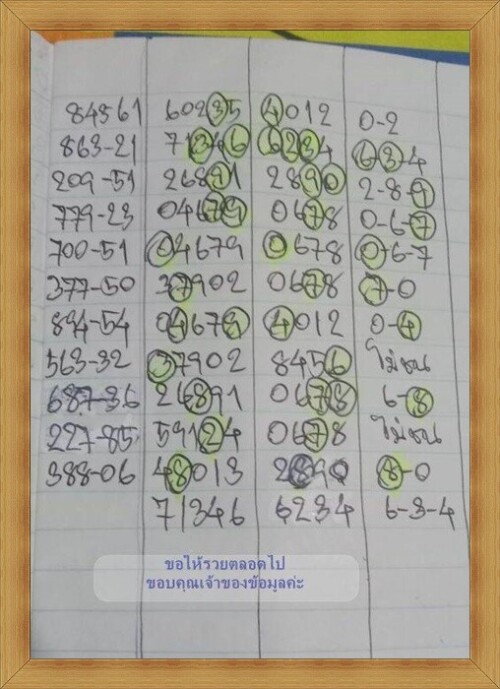 84561 60235 4012 0-2
863-21 71346 6234 6-3-4
209-51 26891 2890 2-8-9
779-23 04679 0678 0-6-7
700-51 04679 0678 0-6-7
377-50 37902 0678 7-0
894-54 04679 4012 0-4
563-32 37902 8456 ไม่ชน
687-36 26891 0678 6-8
227-85 59124 0678 ไม่ชน
388-06 48013 2890 8-0
71346 6234 6-3-4
ขอให้รวยตลอดไป
ขอบคุณเจ้าของข้อมูลค่ะ